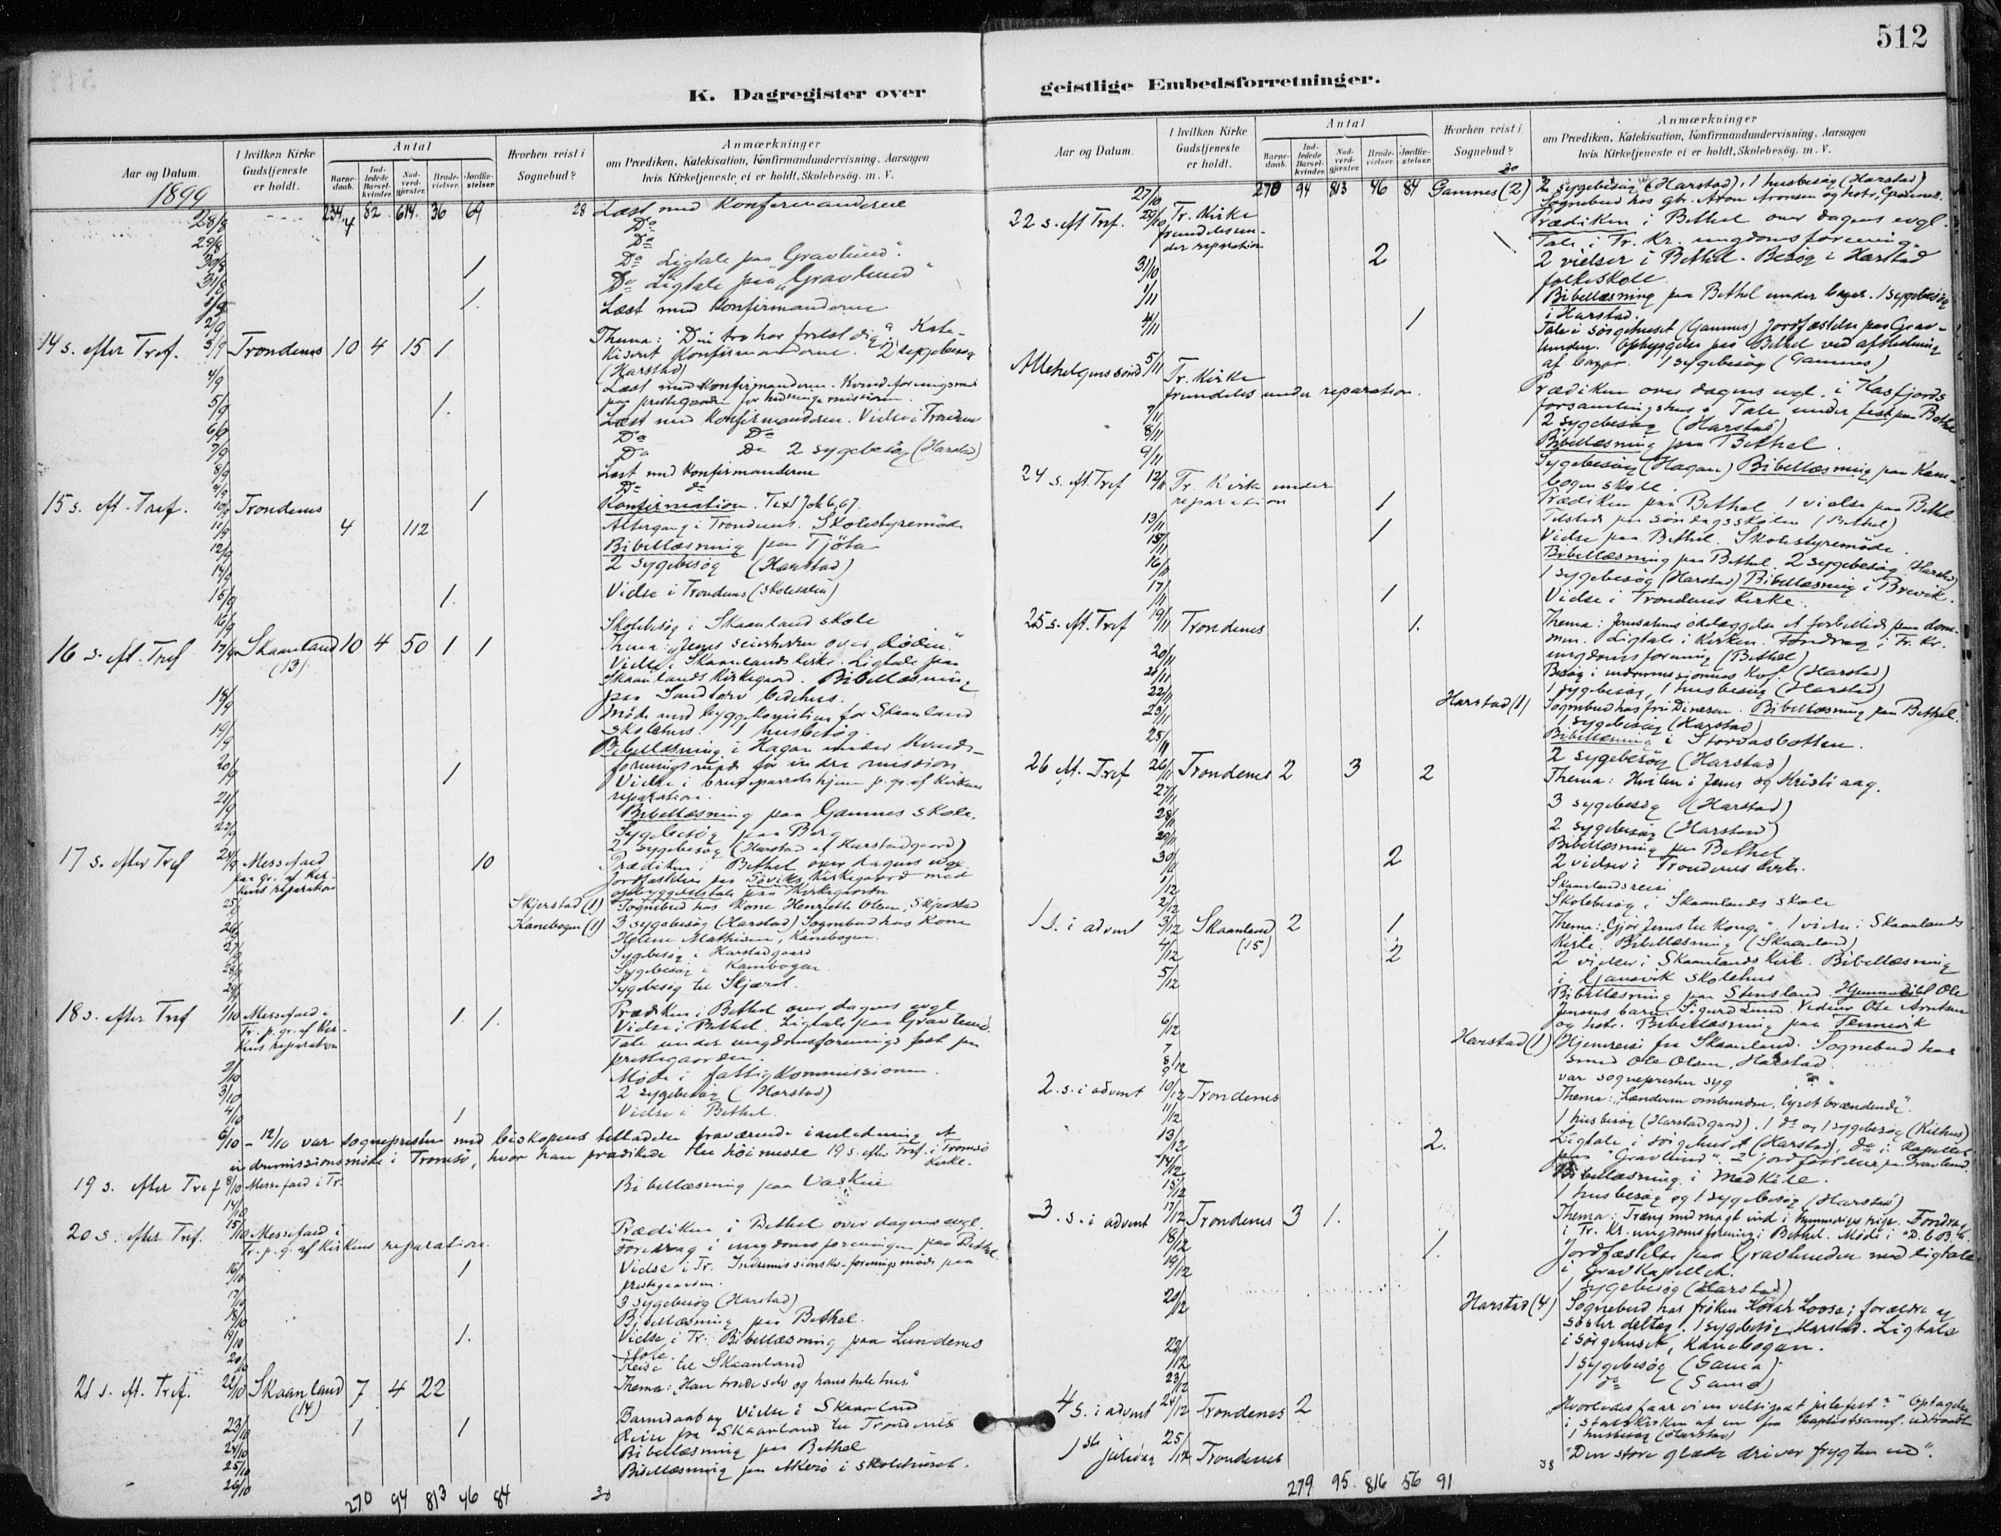 512
K. Dagregister over
Aar og Datum.
I hvilken Kirke Gudstjeneste er holdt.
Antal
Barnedaab.
Indledede Barselkvinder.
Nadverdgjester.
Brudevielser.
Jordfæstelser.
Hvorhen reist i Sognebud?
Anmærkninger
om Prædiken, Katekisation, Konfirmandundervisning, Aarsagen
hvis Kirketjeneste ei er holdt, Skolebesøg. m. V.
1899
28/8 234 82 614 36 69 28 Læst med Konfirmanderne
29/8 Do
30/8 Do Ligtale paa "Gravlund". 1
31/8 Do Ligtale paa "Gravlund" 1.
Læst med Konfirmanderne
2/9
14 s. efter Tref. 3/9 Trondenes 10 4 15 1 Thema: Din tro har frelst dig. Kate-
kiseret Konfirmanderne. 2 sygebesøg
(Harstad)
4/9 Læst med konfirmanderne. Kvindeforeningsmøde
paa prestegaarden for hedningemissionen.
5/9 1. Læst med Konfirmanderne. Vielse i Trondenes
6/9 Do Do
7/9 Do Do 2 sygebesøg (Harstad)
8/9 Læst med konfirmanderne
9/9 Do do
15 s. eft. Tref. 10/9 Trondenes 1 Konfirmation. Text Joh 6,67.
11/9 4 112 Altergang i Trondenes. Skolestyremøde
12/9 Bibellæsning paa Tjöta
14/9 2 sygebesøg (Harstad)
15/9 1. Vielse i Trondenes (Skolesalen)
16/9 Skolebesøg i Skaanland skole
16 s. eft. Tref 17/9 Skaanland 10 4 50 1 1 Thema: Jesus seierherren over døden.
(13) Vielse i Skaanlands Kirke. Ligtale paa
Skaanlands Kirkegaard. Bibellæsning
paa Sandtorv bedehus.
18/9 Møde med byggekomiteen for Skaanland
skolehus. 1 husbesøg.
19/9 Bibellæsning i Hagan under Kvinde-
foreningsmøde for indre mission
20/9 1 Vielse i brudeparrets hjem p. gr. af Kirkens
reparation.
21/9 Bibellæsning paa Gamnes skole.
22/9 Sygebesøg paa Berg
2 sygebesøg (Harstad af Harstadgaard)
17 s. efter Tref 24/9 Messefald 10 Prædiken i Bethel over dagens evgl.
paa gr. af Kir- Jordfæstelser paa Sövik Kirkegaard med
kens reparation opbyggelsestale paa Kirkegaarden
25/9 Skjerstad (1) Sognebud hos Kone Henriette Olsen, Skjerstad
Kanebogen (1) 3 sygebesøg (Harstad) Sognebud hos Kone
26/9 Helene Mathisen, Kanebogen.
27/9 Sygebesøg i Harstadgaard
28/9 Sygebesøg i Kanebogen
29/9 Sygebesøg til Skjærst.
18 s. efter Tref 1/10 Messefald i 1. 1. Prædiken i Bethel over dagens evgl
Tr. p. gr. af Kir- Vielse i Bethel. Ligtale paa Gravlund.
kens reparation Tale under ungdomsforenings fest paa
prestegaarden.
2/10 Møde i fattigkommissionen.
3/10 2 sygebesøg (Harstad)
4/10 1 Vielse i Bethel.
6/10 – 12/10 var sognepresten med biskopens tilladelse fraværende i anledning et
indremissionsmøde i Tromsö, hvor han prædikede til höimesse 19 s. efter Tref. i Tromsö
Kirke.
19 s. efter Tref 8/10 Messefald i Tr.
14/10 Bibellæsning paa Vaskin
20 s. efter Tref. 15/10 Messefald i Prædiken i Bethel over dagens evgl.
Tr. p. g. af Kirkens reparation. Foredrag i ungdomsforeningen paa Bethel.
16/10 1 Vielse i Tr. Indremissionsforenings møde paa
prestegaarden.
17/10 3 sygebesøg (Harstad)
18/10 Bibellæsning paa Bethel.
19/10 1. Vielse i Tr. Bibellæsning paa Lundenes
skole.
20/10 Reise til Skaanland
21 s. eft. Tref. 22/10 Skaanland 7 4 22 Thema: "Han troede selv og hans hele hus."
(14)
23/10 1 1 Barnedaab og Vielse i Skaanland
Reise fra Skaanland til Trondenes
24/10 Bibellæsning paa Bethel
25/10 Bibellæsning paa Akerö i skolehuset.
26/10
270 94 813 46 84 30
geistlige Embedsforretninger.
Aar og Datum.
I hvilken Kirke Gudstjeneste er holdt.
Antal
Barnedaab.
Indledede Barselkvinder.
Nadverdgjester.
Brudevielser.
Jordfæstelser.
Hvorhen reist i Sognebud?
Anmærkninger
om Prædiken, Katekisation, Konfirmandundervisning, Aarsagen
hvis Kirketjeneste ei er holdt, Skolebesøg. m. V.
27/10 270 94 813 46 84 30 Gamnes (2) 2 sygebesøg (Harstad), 1 husbesøg (Harstad)
Sognebud hos gbr. Aron Aronsen og hstr, Gamnes.
22 s. eft Tref. 29/10 Tr. Kirke Prædiken i Bethel over dagens evgl.
fremdeles un- Tale i Tr. Kr. ungdomsforening.
der reparation
31/10 2 2 vielser i Bethel. Besøg i Harstad
folkeskole
1/11 Bibellæsning paa Bethel under bazar. 1 sygebesøg
i Harstad.
4/11 1 Tale i sørgehuset (Gamnes) Jordfæstelse paa Grav-
lunden. Opbyggelse paa Bethel ved afslutning
af bazar. 1 sygebesøg (Gamnes)
Allehelgens sönd 5/11 Tr. Kirke Prædiken over dagens evgl. i Kasfjords
fremdeles under reparation. forsamlingshus. Tale under fest paa Bethel
7/11 2 sygebesøg (Harstad)
8/11 Bibellæsning paa Bethel.
9/11 Sygebesøg (Hagan) Bibellæsning paa Kane-
bogen skole.
24 s. eft. Tref 12/11 Tr. Kirke under 1 Prædiken paa Bethel. 1 vielse paa Bethel
reparation Tilstede paa söndagsskolen (Bethel)
13/11 1 Vielse paa Bethel. Skolestyremøde.
15/11 Bibellæsning paa Bethel. 2 sygebesøg (Harstad)
16/11 1 sygebesøg (Harstad) Bibellæsning i Brevik.
17/11 1 Vielse i Trondenes Kirke.
25 s. eft. Tref 19/11 Trondenes 1. Thema: Jerusalems ødelæggelse et forbillede paa dom-
men. Ligtale i Kirken. Foredrag i Tr. Kr.
ungdomsforening (Bethel)
20/11
21/11 Besøg i indremissionens Kvf. (Harstad)
22/11 1 sygebesøg, 1 husbesøg (Harstad)
23/11 Harstad (1) Sognebud hos fru Dinesen. Bibellæsning paa Bethel.
1 sygebesøg (Harstad)
25/11 Bibellæsning i Stordasbotten.
26 eft. Tref 26/11 Trondenes 2 3 2 2 sygebesøg (Harstad)
Thema: Hvilen i Jesus og Kristi aag.
27/11 3 sygebesøg (Harstad)
28/11 2 sygebesøg (Harstad)
29/11 Bibellæsning paa Bethel
30/11 2 2 vielser i Trondenes Kirke.
1/12 Skaanlandsreise
2/12 Skolebesøg i Skaanlands skole
1 s. i advent 3/12 Skaanland 2 1 Thema: Gjør Jesus til Konge. 1 vielse i Skaanlands
(15) Kirke. Bibellæsning (Skaanland)
4/12 2 2 vielser i Skaanlands Kirke. Bibellæsning
i Gansvik skolehus
5/12 Bibellæsning paa Stensland. Hjemmedöbt Ole
Jensens barn Sigurd Lund. Vidner Ole Arntsen
6/12 og hstr. Bibellæsning paa Tennevik
7 Harstad (1) Hjemreise fra Skaanland. Sognebud hos
8/12 smed Ole Olsen, Harstad
9 var sognepresten syg
2. s. i advent 10/12 Trondenes Thema: "Lænderne ombundne, lyset brændende".
11/12 1 husbesøg (Harstadgaard). 1 do og 1 sygebesøg (Kilhus)
13/12 2. Ligtale i sørgehuset (Harstad), do i Kapellet
paa "Gravlund". 2 jordfæstelser paa Gravlund.
14/12 Bibellæsning i Mödkile.
15/12 1 husbesøg og 1 sygebesøg (Harstad)
3. s. i advent 17/12 Trondenes 3 1. Thema: Træng med magt ind i himmeriges rige. Foredrag
i Tr. Kr. ungdomsforening i Bethel. Møde i "D. b. B."
18/12 1. Jordfæstelse paa Gravlunden med ligtale
19/12 i Gravkapellet.
1 sygebesøg (Harstad)
20/12 Harstad (4) Sognebud hos frøken Loose; forældre og
søster deltog. 1 sygebesøg Harstad. Ligtale
i sørgehuset, Kanebogen.
22/12 1 sygebesøg (Sama)
23/12 1 do (Samd)
4 s. i advent 24/12 Trondenes 2 "Hvorledes faar vi en velsignet julefest?" Optagelse
i statskirken af en fra baptistsamf. udtraadt
1 husbesøg (Harstad)
1ste juledag 25/12 Trondenes 38 "Den store glæde driver frygten ud".
279 95 816 56 91